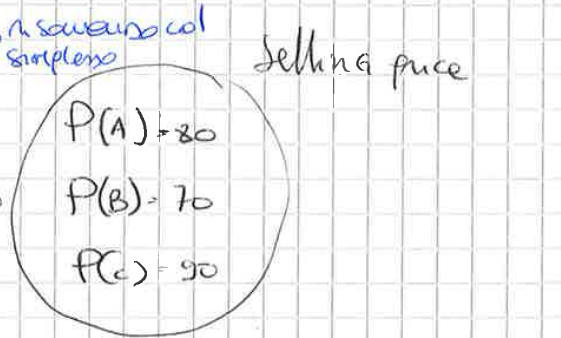 risolvendo col
simplesso
Selling price
P(A) = 80
P(B) = 70
P(C) = 90